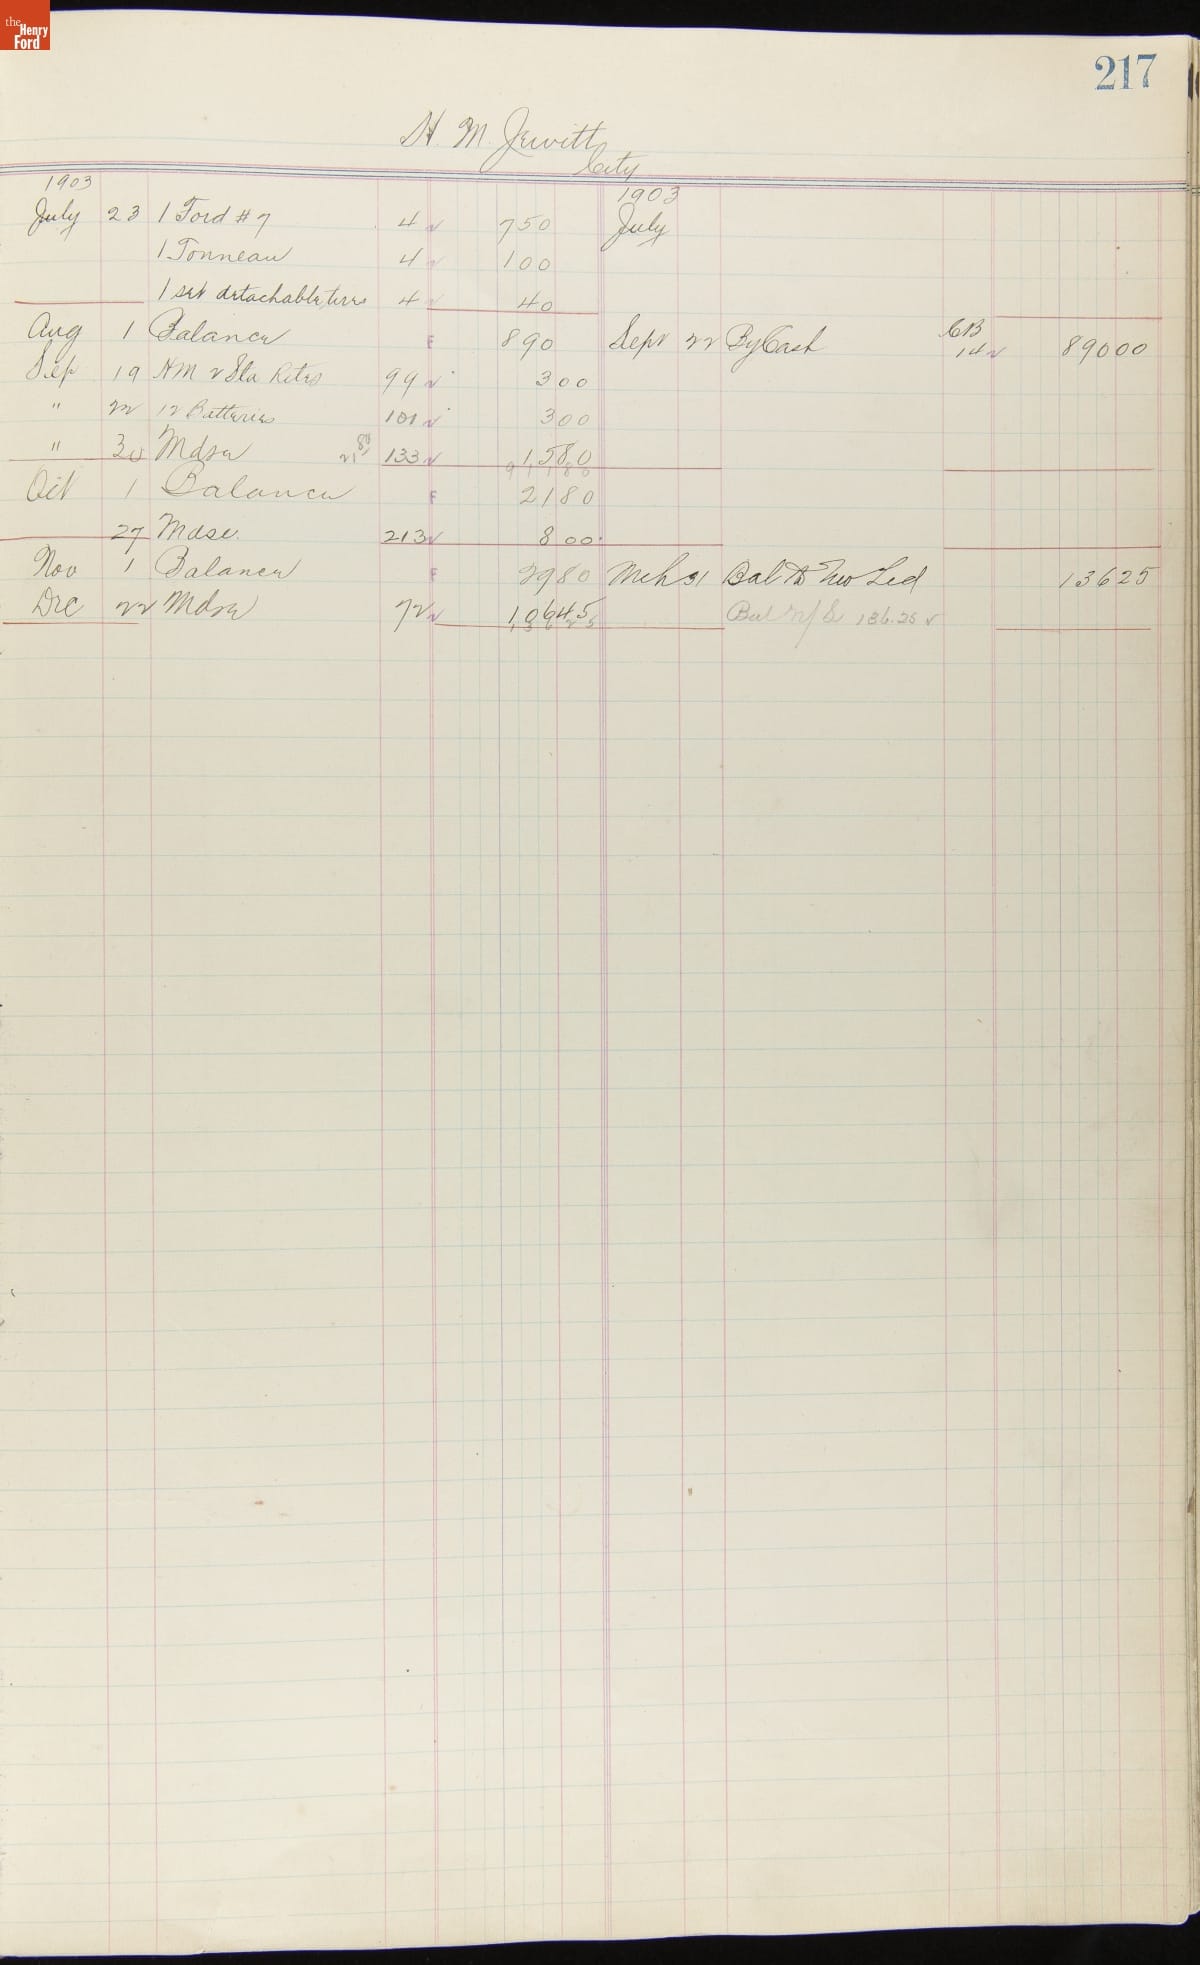 the
Henry
Ford
217
H. M. Jewitt
City
1903 1903
July 23 1 Ford # 7 4 750 July
1 Tonneau 4 100
1 set detachable tires 4 40
Aug 1 Balance F 890 Sept 22 By Cash CB 14 890 00
Sep 19 99 3 00
" 22 12 Batteries 101 3 00
" 30 Mdse 21 80 133 15 80
911 80
Oct 1 Balance F 21 80
27 Mdse. 213 8 00
Nov 1 Balance F 29 80 Mch 31 Bal to New Led 136 25
Dec 22 Mdse 72 106 45 Bal 136.25
136 25